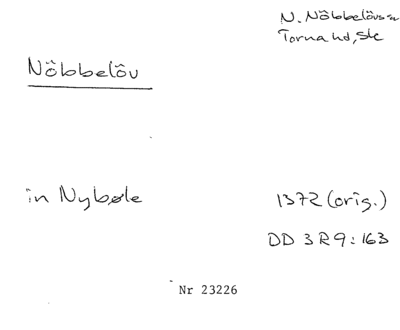 N. Nöbbelövs sn
Torna hd, Sk
Nöbbelöv
in Nybøle
1372 (orig.)
DD 3 R 9: 163
Nr 23226